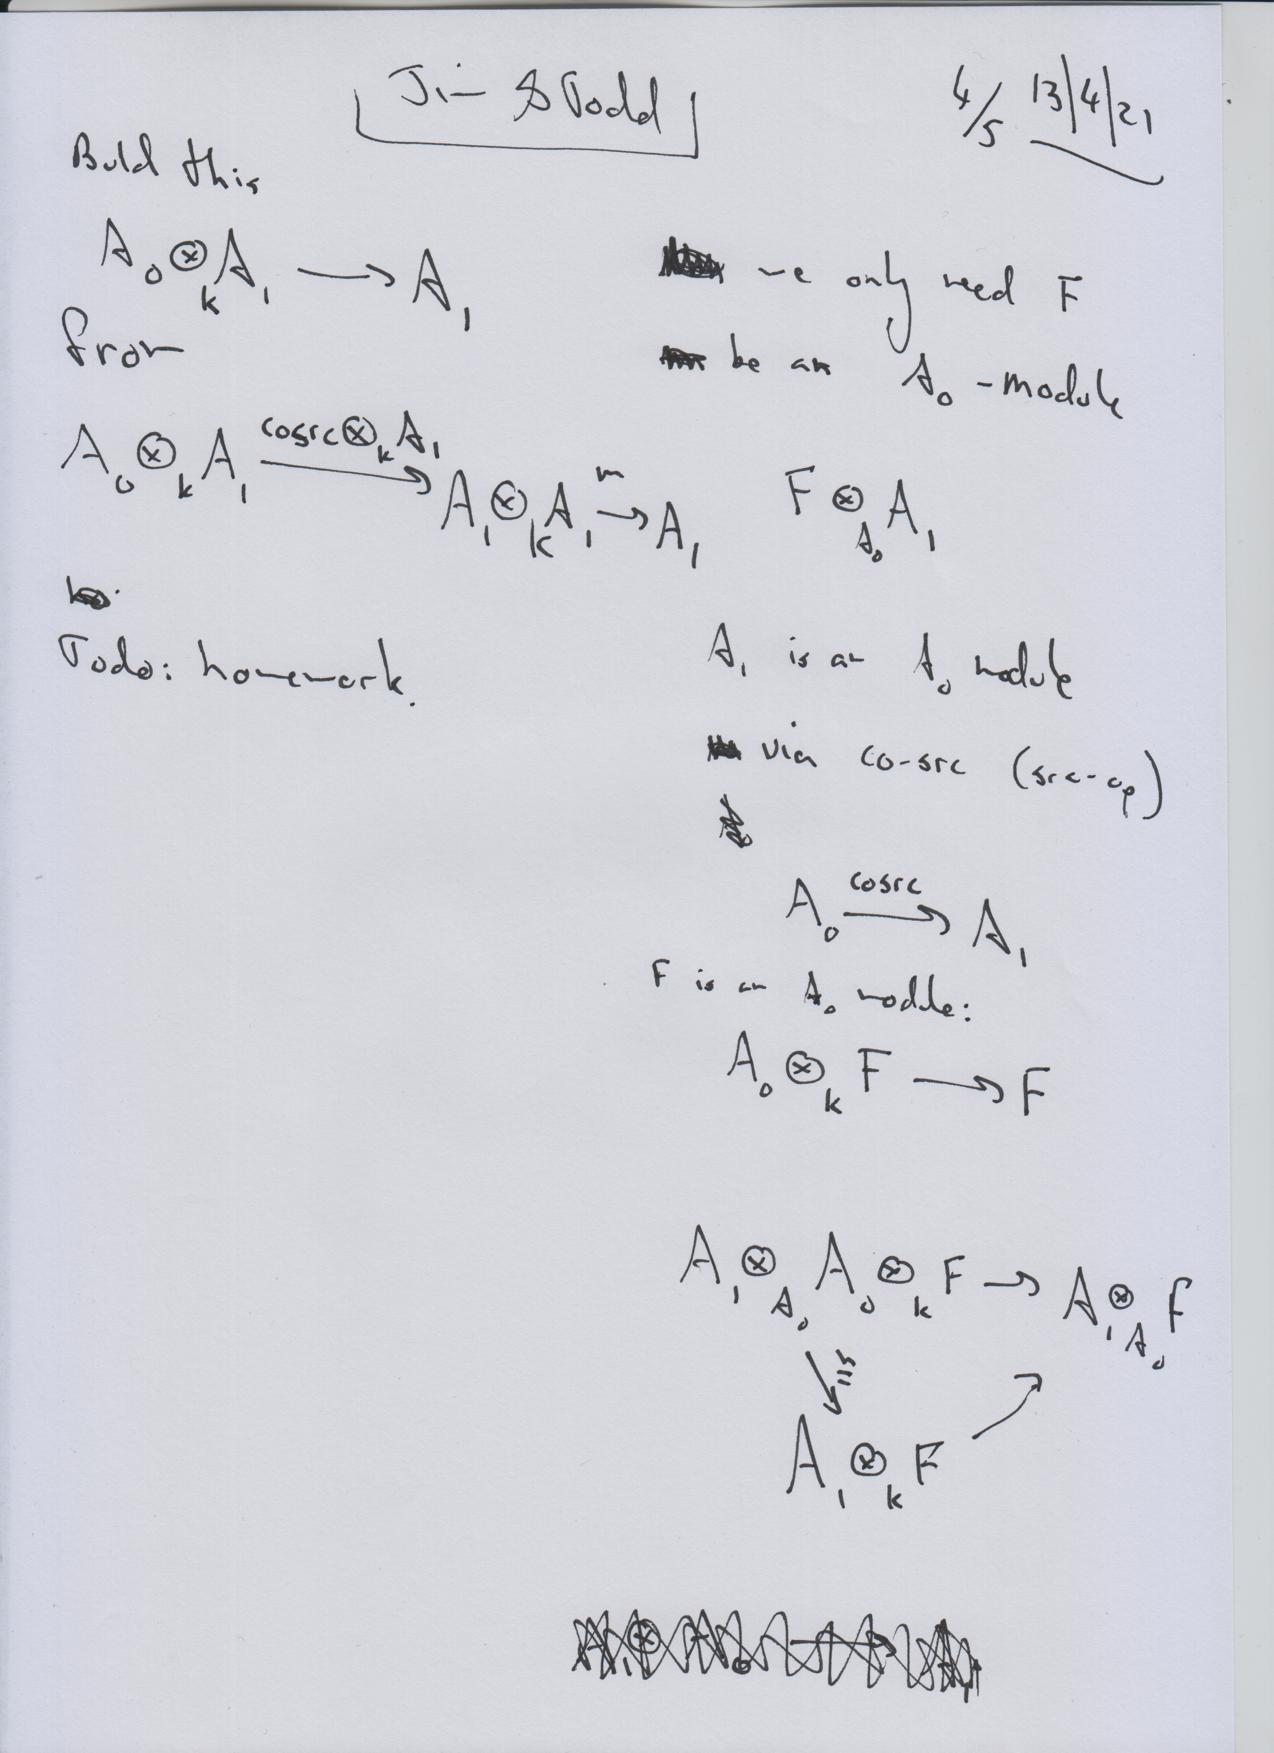 Jim & Todd
4/5 13/4/21
Build this
A₀ ⊗ₖ A₁ ⟶ A₁
from
A₀ ⊗ₖ A₁ ⟶ A₁ ⊗ₖ A₁ ⟶ A₁
cosrc ⊗ₖ A₁
m
Todo: homework.
we only need F
be an A₀ -module
F ⊗_A₀ A₁
A₁ is an A₀ module
via co-src (src-op)
cosrc
A₀ ⟶ A₁
F is an A₀ module:
A₀ ⊗ₖ F ⟶ F
A₁ ⊗_A₀ A₀ ⊗ₖ F → A₁ ⊗_A₀ F
↘ ≅ ↗
A₁ ⊗ₖ F